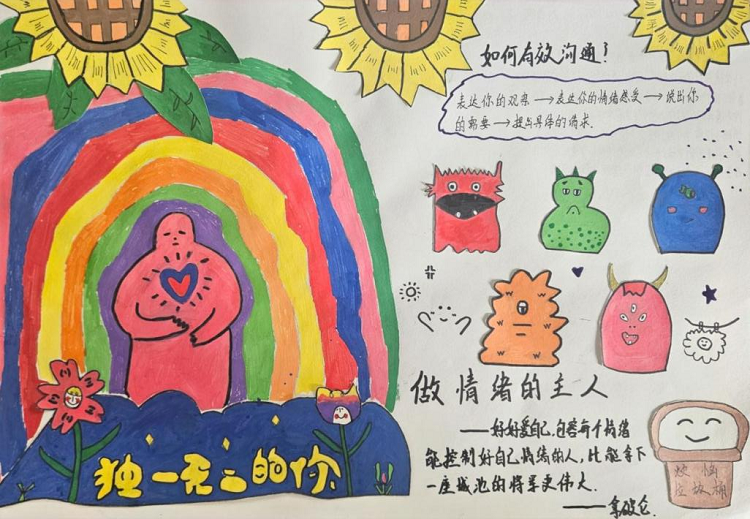 如何有效沟通?
表达你的观察→表达你的情绪感受→说出你
的需要→提出具体的请求.
做情绪的主人
——好好爱自己,自若每个情绪
能控制好自己情绪的人,比能拿下
一座城池的将军更伟大.
——拿破仑.
烦恼
垃圾桶
独一无二的你